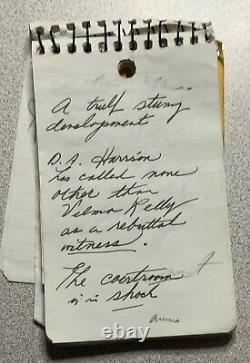 A trulf stuny
development
D.A. Harrison
has called none
other than
Velma Kelly
as a rebuttal
witness.
The courtroom
is in shock